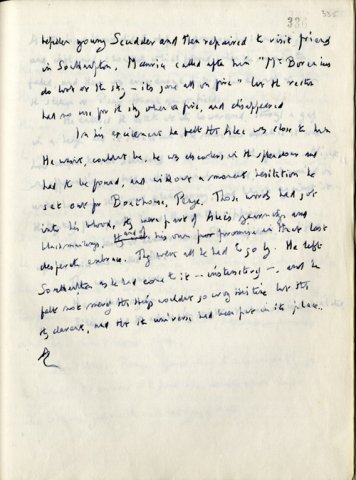 336
335
befallen young Scudder and then repaired to visit friends
in Southampton. Maurice called after him "Mr Borenius
do look at the sky — its gone all on fire" but the rector
had no use for the sky when on fire, and disappeared
In his excitement he felt that Alec was close to him
He wasn't, couldn't be, he was elsewhere in the splendour and
had to be found, and without a moment hesitation he
set out for Boathouse, Penge. Those words had got
into his blood, they were part of Alec's yearnings and
blackmailings, and of his own poor promise in that last
desperate embrace. They were all he had to go by. He left
Southampton as he had come to it — instinctively —, and he
felt not merely that things wouldn't go wrong this time but that
they daren't, and that the universe had been put in its place.